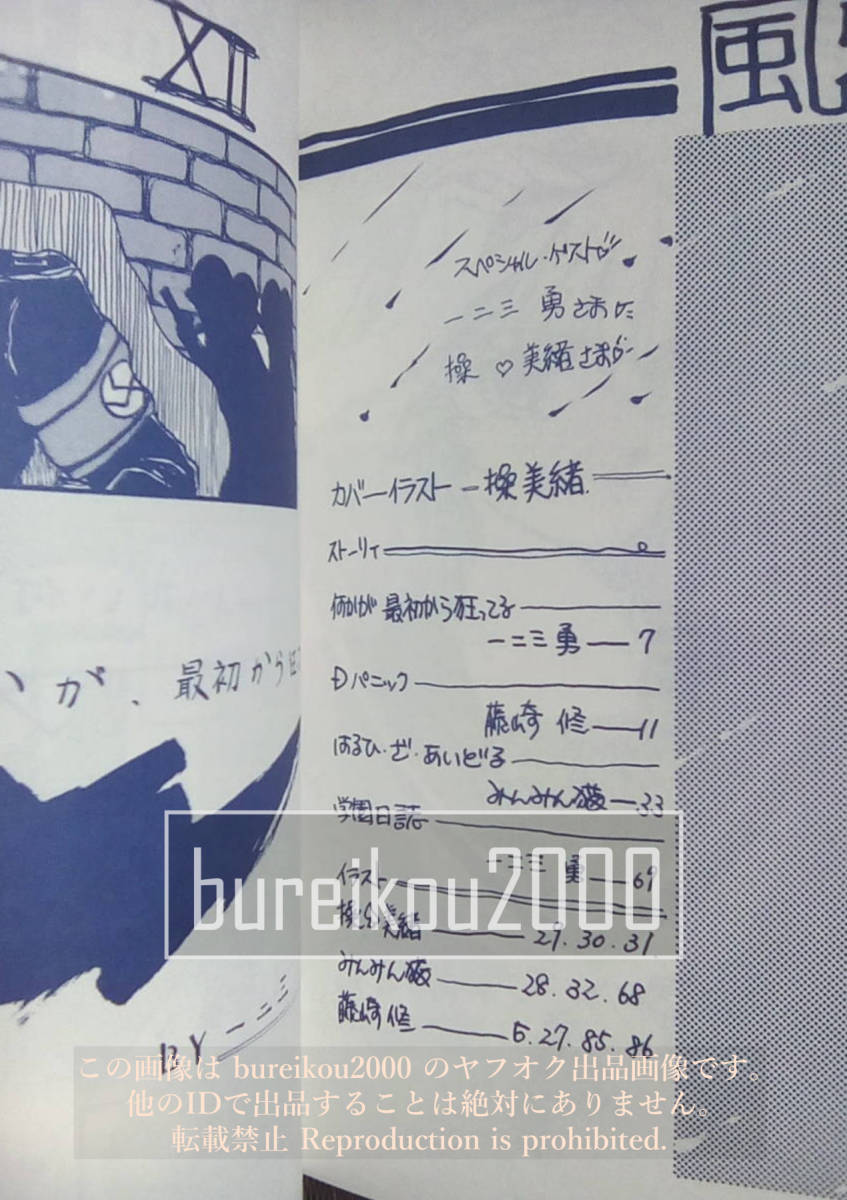 XII
が、最初から
BY 一二三
風
スペシャル・ゲストで
一二三 勇さまに
操 ♡ 美緒さまが
カバーイラスト — 操美緒.
ストーリィ
何かが最初から狂ってる
一二三 勇 — 7
Dパニック
藤崎 修 — 11
はるひ・ざ・あいどる
みんみん猫 — 33
学園日誌
一二三 勇 — 69
イラスト
操美緒 — 29.30.31
みんみん猫 — 28.32.68
藤崎 修 — 5.27.85.86
bureikou2000
この画像は bureikou2000 のヤフオク出品画像です。
他のIDで出品することは絶対にありません。
転載禁止 Reproduction is prohibited.